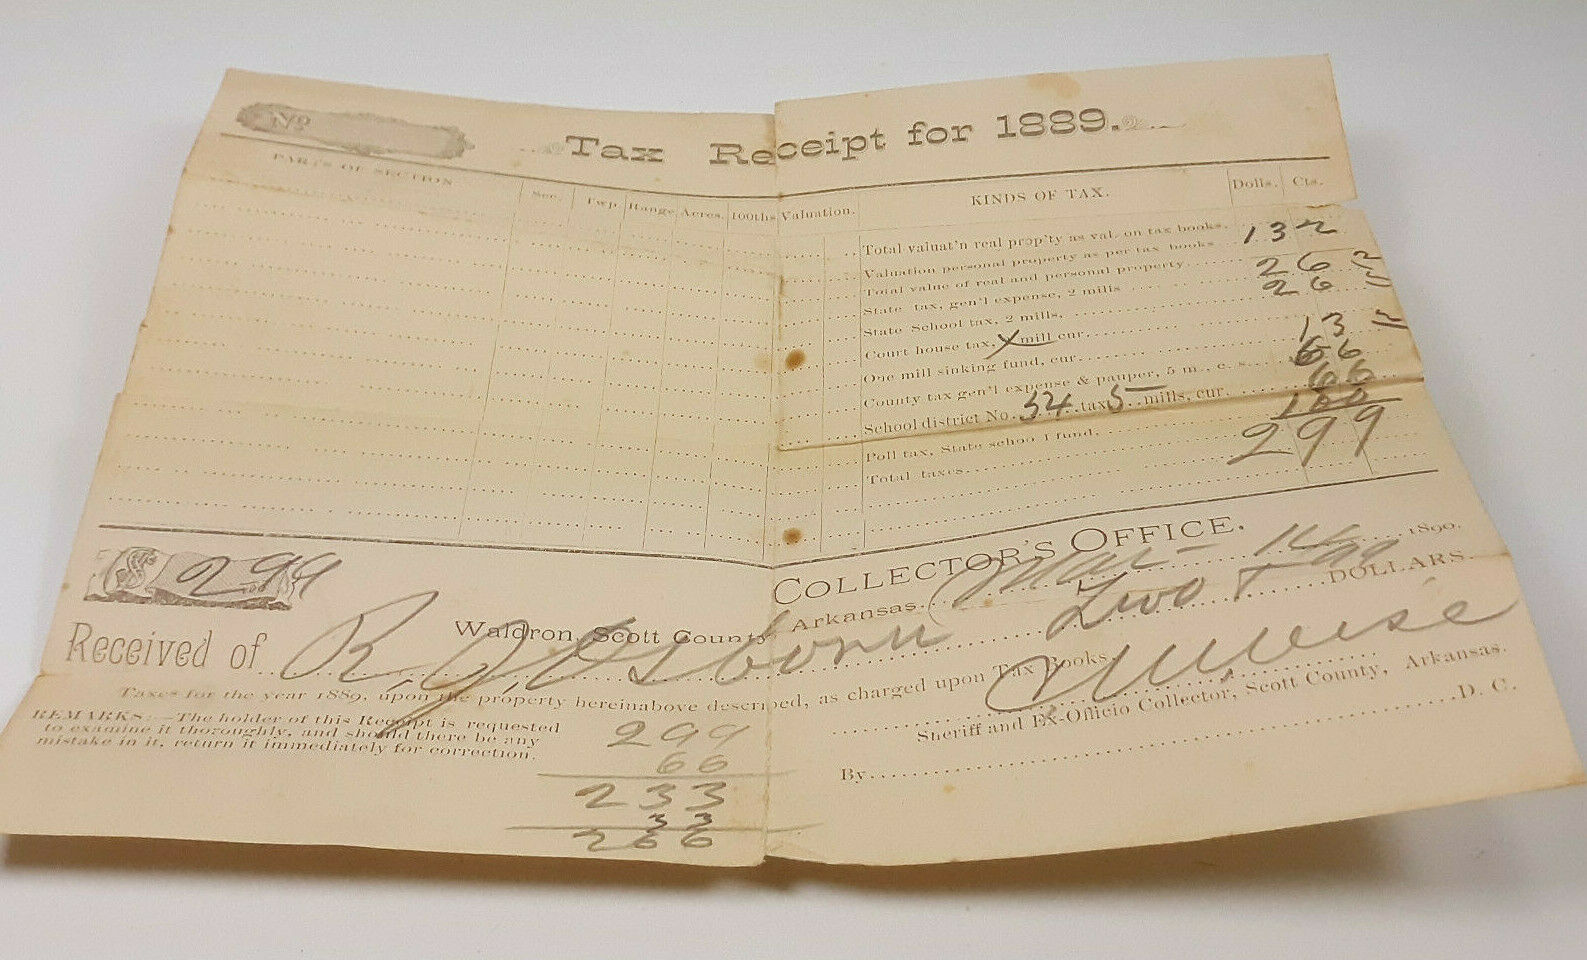 No
Tax Receipt for 1889.
PARTS OF SECTION Sec. Twp. Range Acres. 100ths Valuation. KINDS OF TAX. Dolls. Cts.
Total valuat'n real prop'ty as val. on tax books.
Valuation personal property as per tax books 132
Total value of real and personal property
State tax, gen'l expense, 2 mills 26
State School tax, 2 mills, 26
Court house tax, mill cur
One mill sinking fund, cur 13
County tax gen'l expense & pauper, 5 m., c. s. 66
School district No. 54 tax 5 mills, cur. 66
Poll tax, State school fund, 100
Total taxes 299
$ 2.99
COLLECTOR'S OFFICE.
Waldron, Scott County Arkansas. Mar 1890.
Received of R. J. Osborn Two + 99 DOLLARS.
Taxes for the year 1889, upon the property hereinabove described, as charged upon Tax Books.
REMARKS:—The holder of this Receipt is requested
to examine it thoroughly, and should there be any
mistake in it, return it immediately for correction.
Sheriff and Ex-Officio Collector, Scott County, Arkansas.
By D. C.
299
66
233
33
266